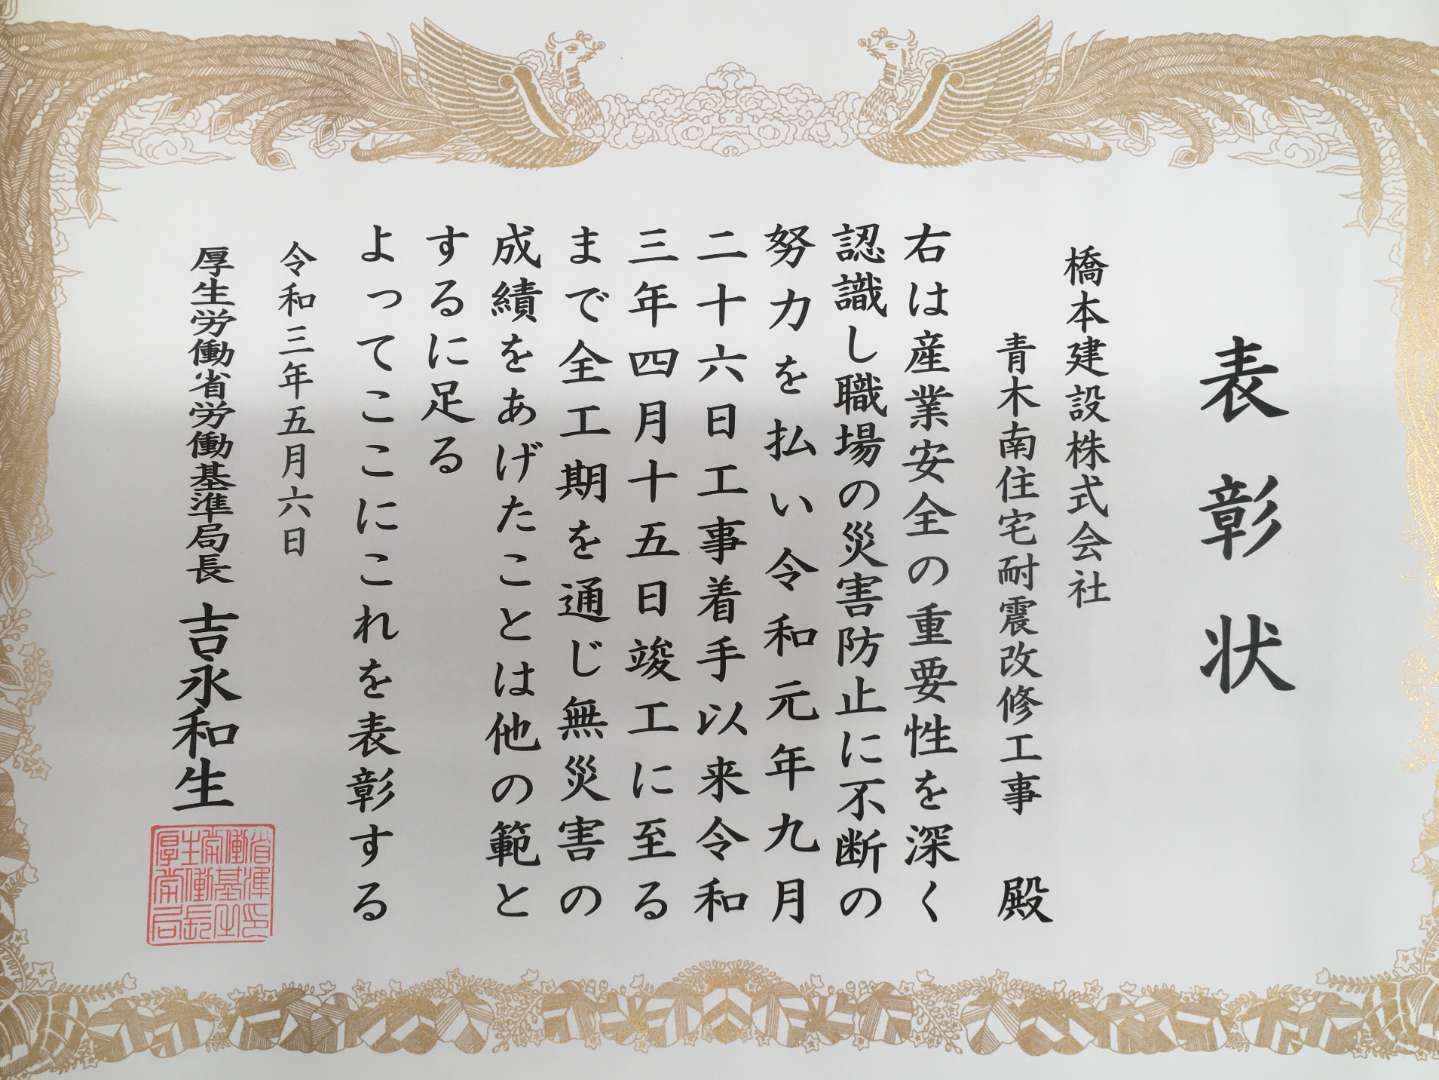 表彰状
橋本建設株式会社
青木南住宅耐震改修工事 殿
右は産業安全の重要性を深く
認識し職場の災害防止に不断の
努力を払い令和元年九月
二十六日工事着手以来令和
三年四月十五日竣工に至る
まで全工期を通じ無災害の
成績をあげたことは他の範と
するに足る
よってここにこれを表彰する
令和三年五月六日
厚生労働省労働基準局長 吉永和生
厚生労働省労働基準局長之印